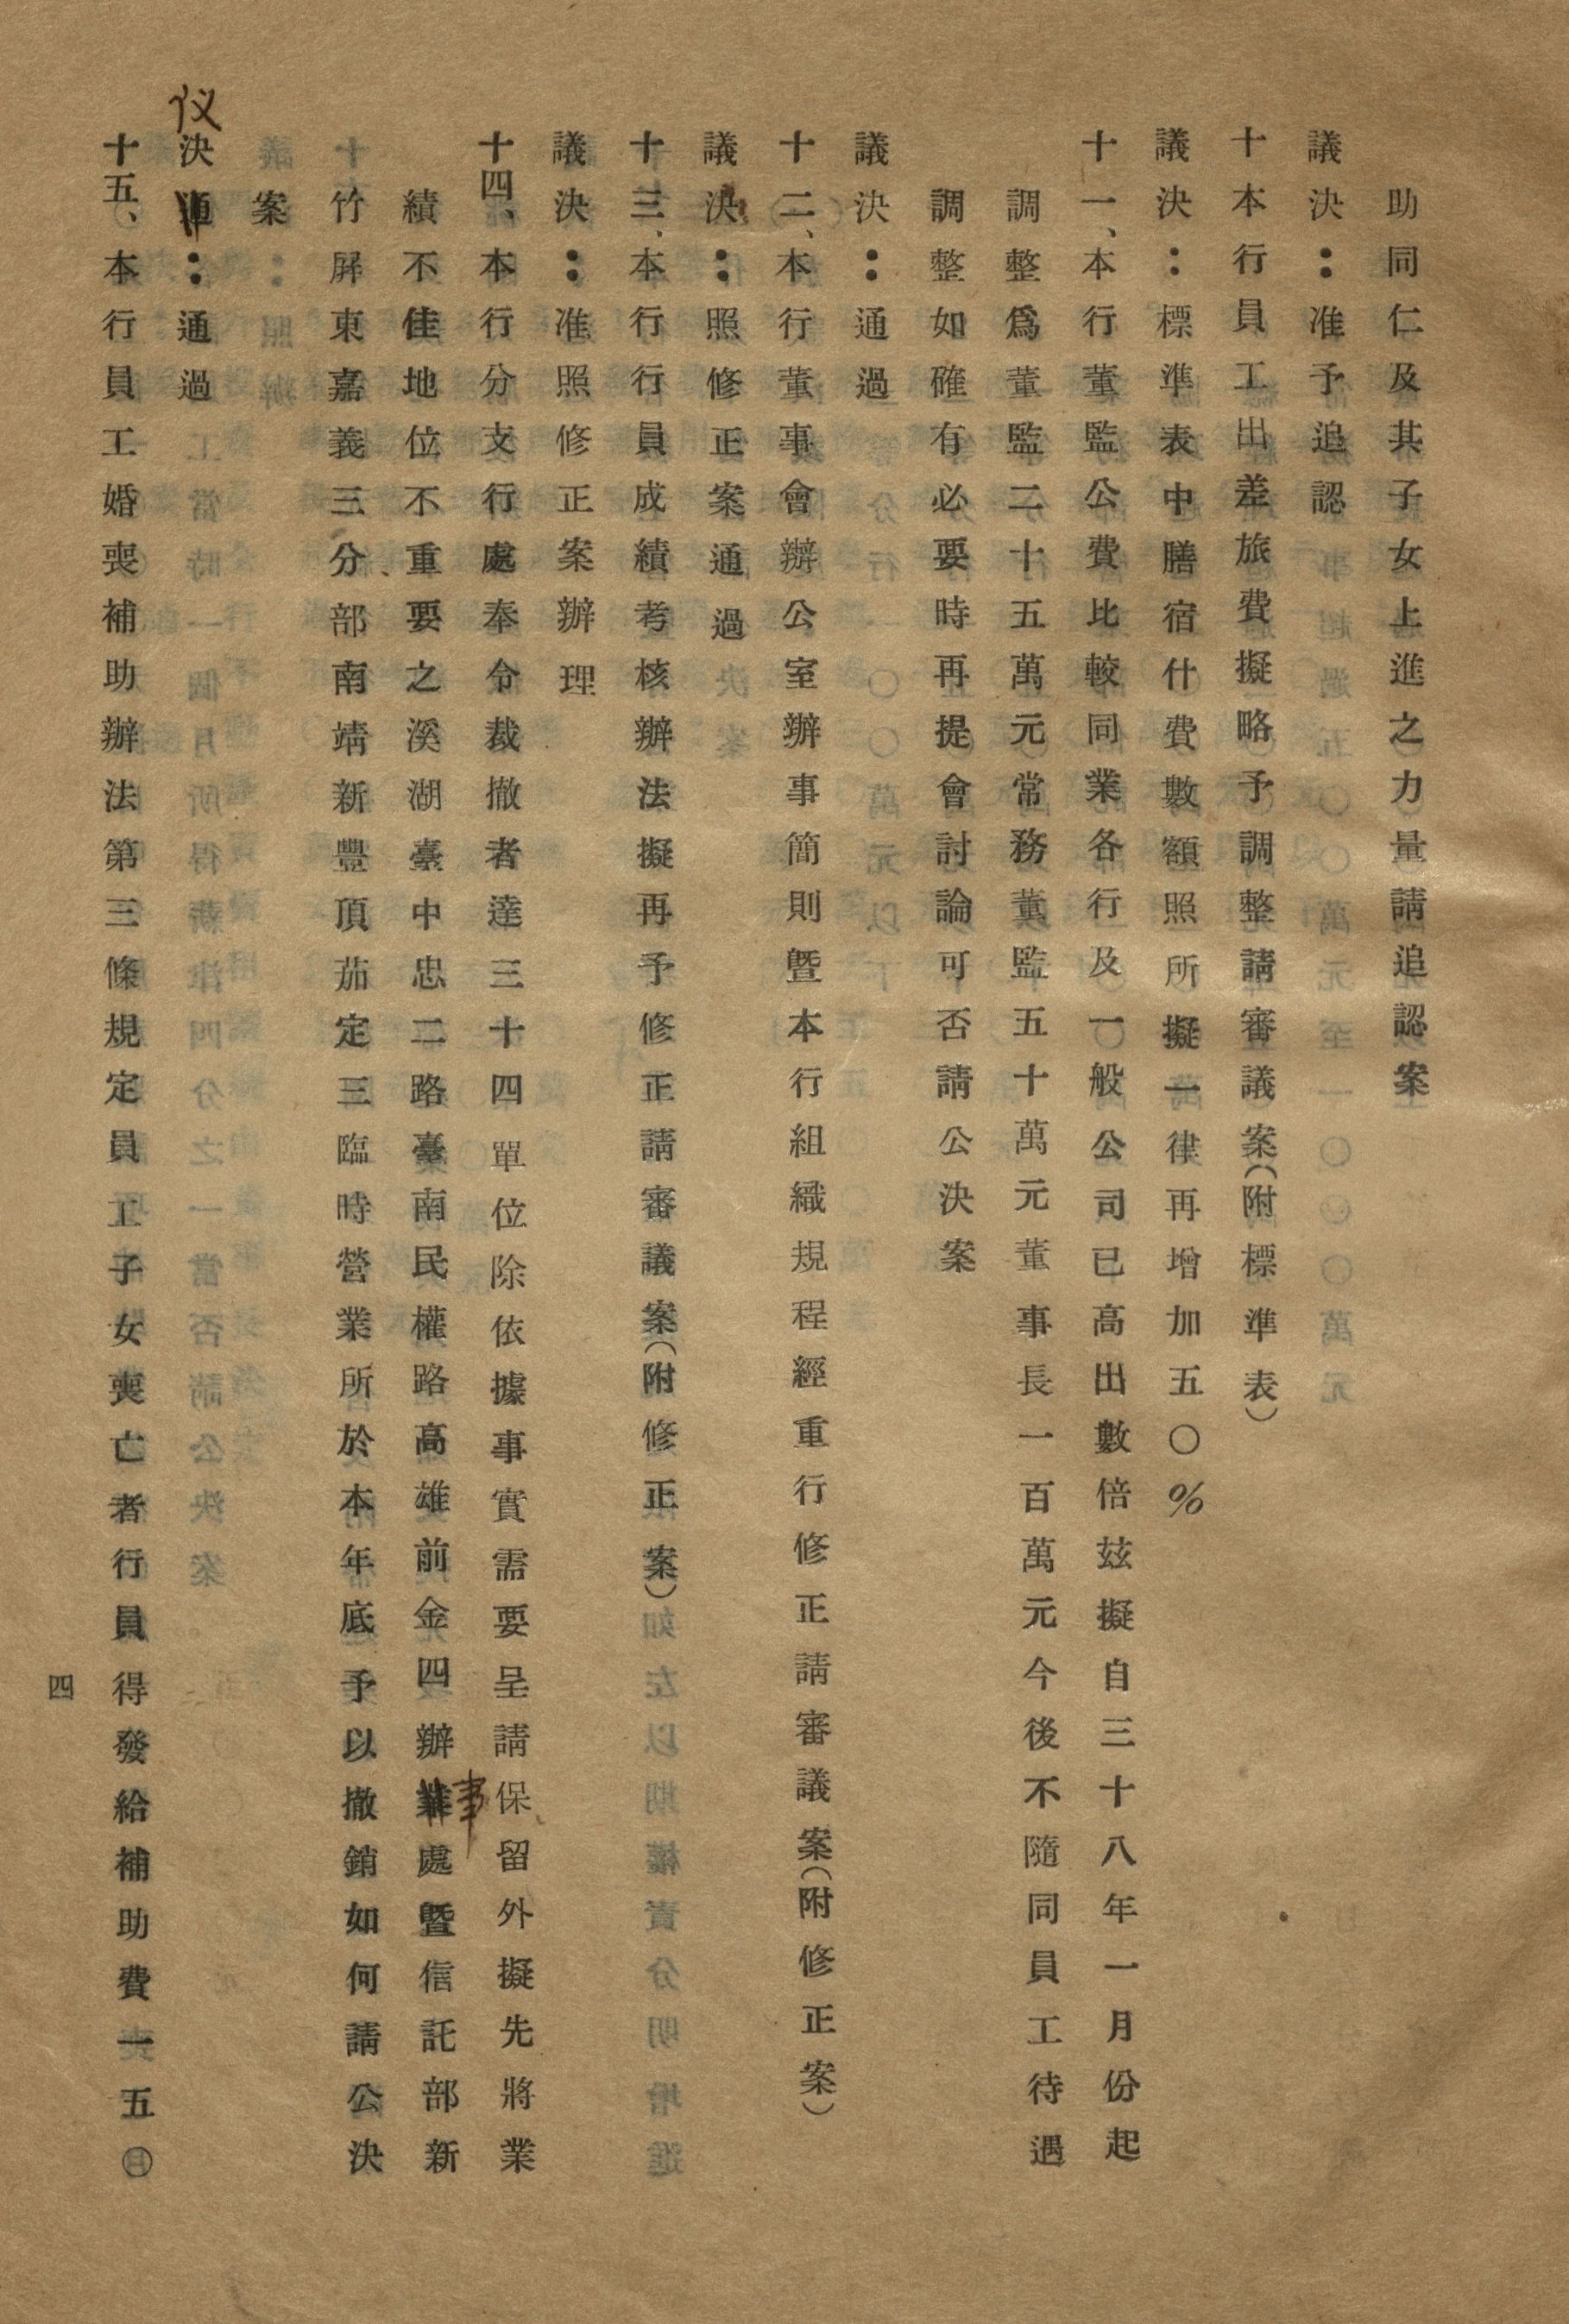 助同仁及其子女上進之力量請追認案
議決：准予追認
十本行員工出差旅費擬略予調整請審議案（附標準表）
議決：標準表中膳宿什費數額照所擬一律再增加五〇％
十一、本行董監公費比較同業各行及一般公司已高出數倍玆擬自三十八年一月份起
調整爲董監二十五萬元常務董監五十萬元董事長一百萬元今後不隨同員工待遇
調整如確有必要時再提會討論可否請公決案
議決：通過
十二、本行董事會辦公室辦事簡則曁本行組織規程經重行修正請審議案（附修正案）
議決：照修正案通過
十三、本行行員成績考核辦法擬再予修正請審議案（附修正案）
議決：准照修正案辦理
十四、本行分支行處奉令裁撤者達三十四單位除依據事實需要呈請保留外擬先將業
績不佳地位不重要之溪湖臺中忠二路臺南民權路高雄前金四辦事處曁信託部新
竹屏東嘉義三分部南靖新豐頂茄定三臨時營業所於本年底予以撤銷如何請公決
案
仪決：通過
十五、本行員工婚喪補助辦法第三條規定員工子女喪亡者行員得發給補助費一五〇
四